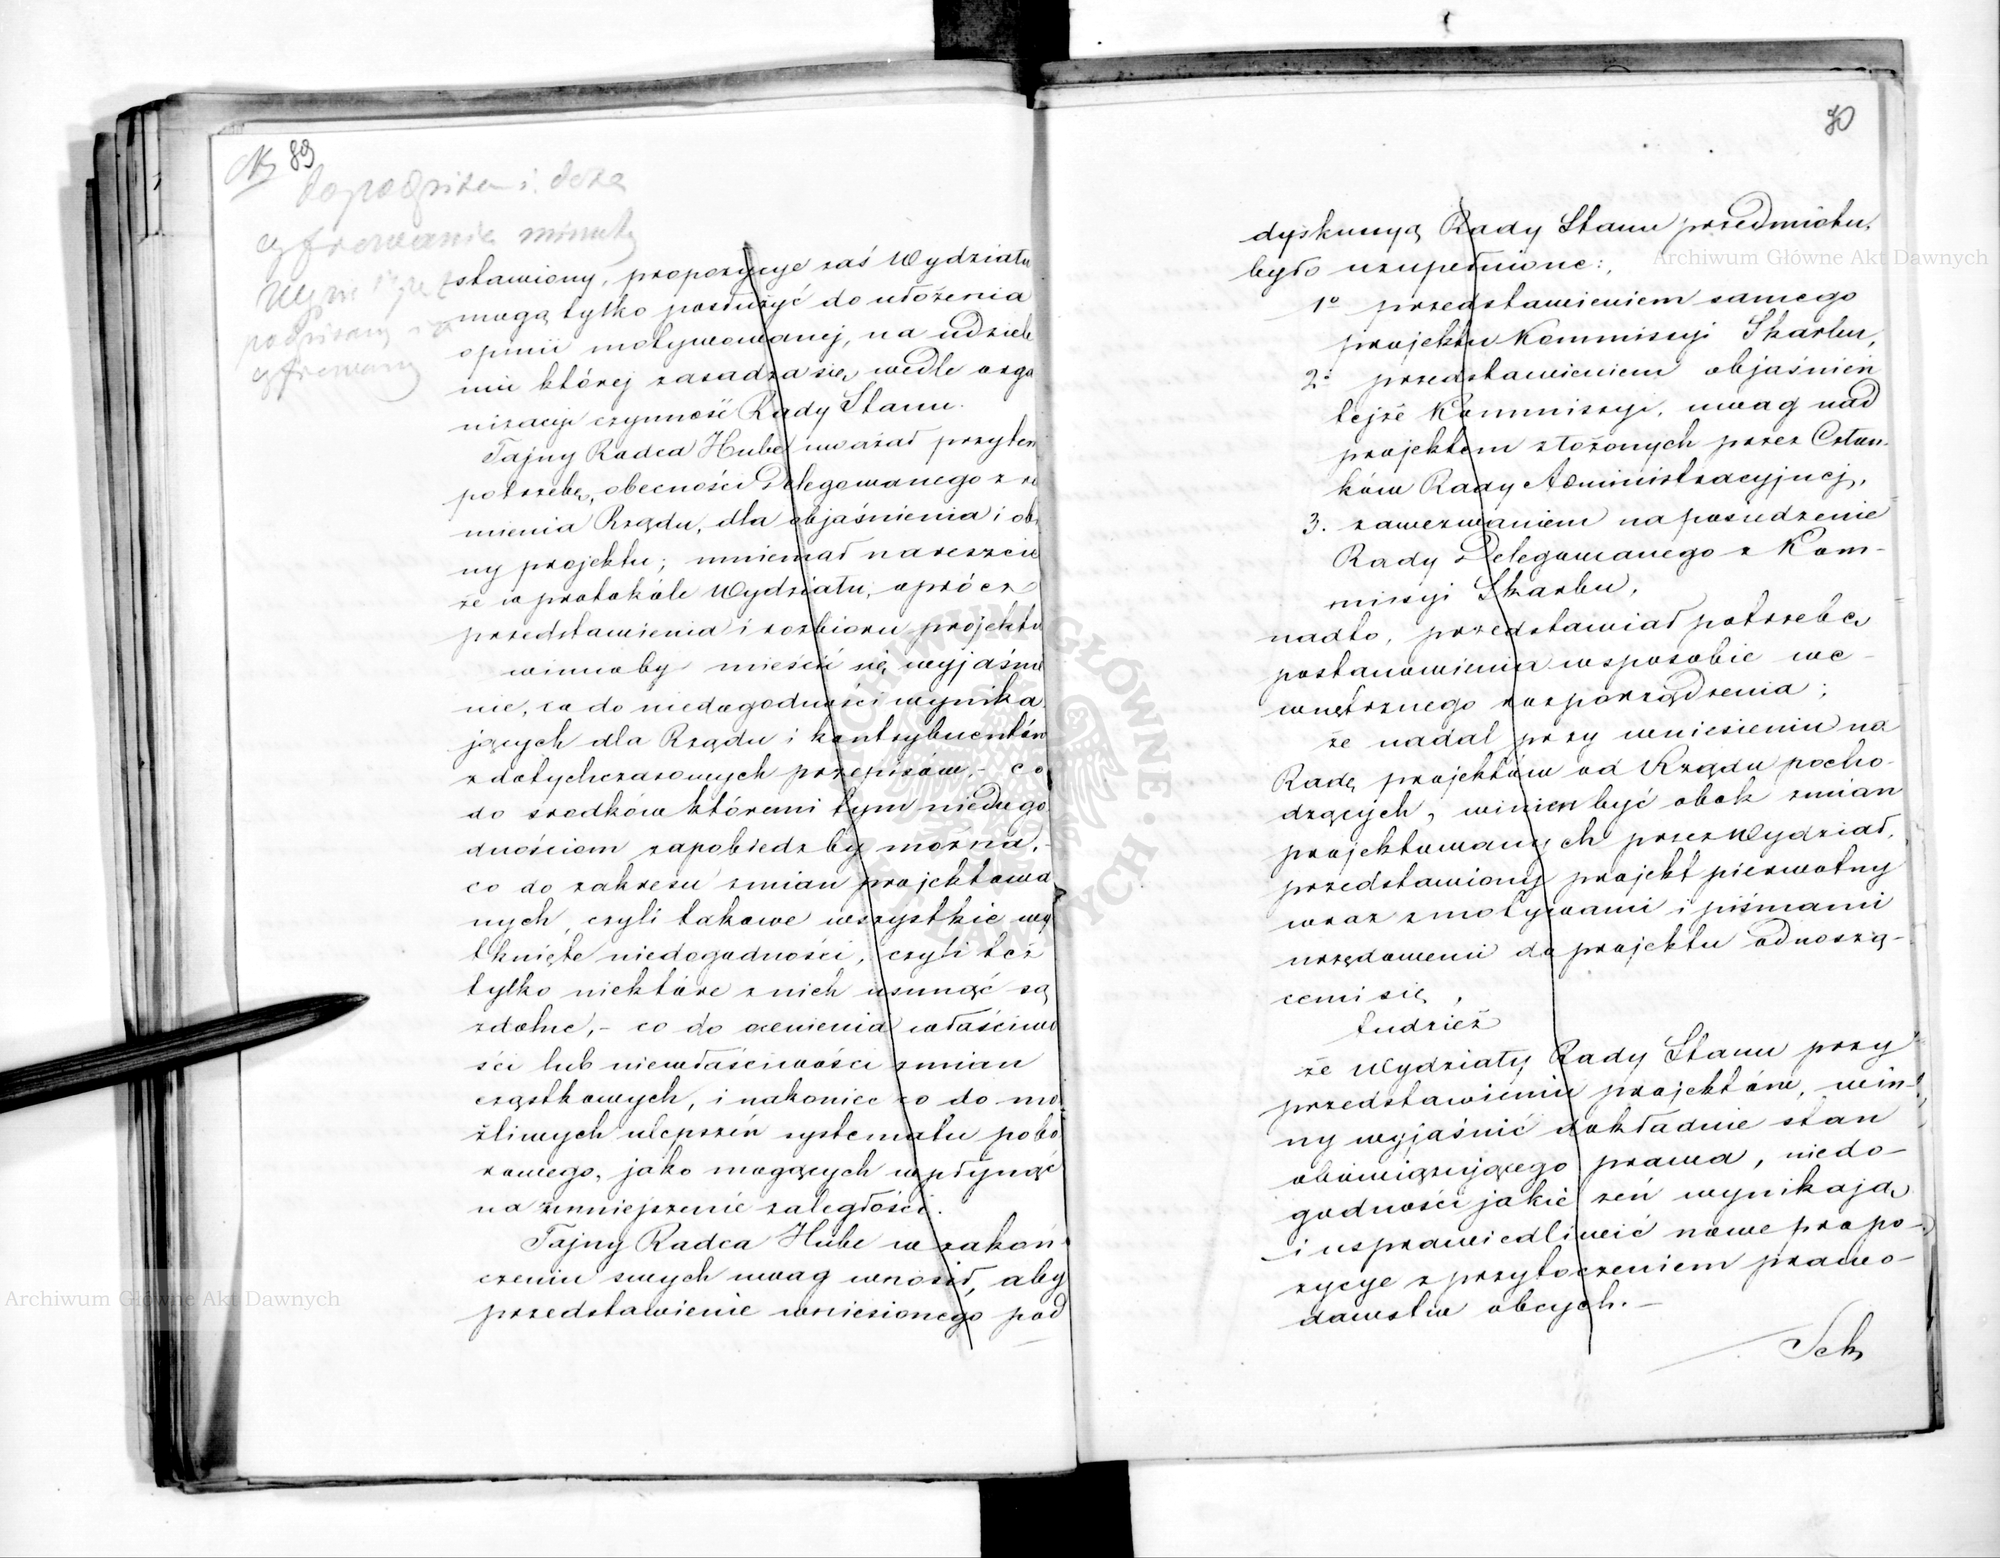 89
do podpisu i do za
cyfrowania minuty
podpisany
cyfrowany
stawiony, propozycye zaś Wydziału
mogą tylko posłużyć do ułożenia
opinii motywowanej, na udziele
niu której zasadza się wedle orga
nizacyi czynność Rady Stanu.
Tajny Radca Hube uważał przytem
potrzebę, obecności Delegowanego z ra
mienia Rządu, dla objaśnienia i obro
ny projektu; mniemał nareszcie
że w protokóle Wydziału, oprócz
przedstawienia i rozbioru projektu
winnoby mieścić się wyjaśnie
nie, co do niedogodności wynika
jących dla Rządu i kontrybuentów
z dotychczasowych przepisów,- co
do środków któremi tym niedogo
dnościom zapobiedz by można,-
co do zakresu zmian projektowa
nych, czyli takowe wszystkie wy
tknięte niedogodności, czyli też
tylko niektóre z nich usunąć są
zdolne,- co do ocenienia właściwo
ści lub niewłaściwości zmian
cząstkowych, i nakoniec co do mo
żliwych ulepszeń systematu pobo
rowego, jako mogących wpłynąć
na zmniejszenie zaległości.
Tajny Radca Hube w zakoń
czeniu swych uwag wnosił, aby
przedstawienie wniesionego pod
90
dyskussyą Rady Stanu przedmiotu,
było uzupełnione:
1o przedstawieniem samego
projektu Kommissyi Skarbu,
2o przedstawieniem objaśnień
tejże Kommissyi, uwag nad
projektem złożonych przez Człon-
ków Rady Administracyjnej,
3. zawezwaniem na posiedzenie
Rady Delegowanego z Kom-
missyi Skarbu,
nadto, przedstawiał potrzebę
postanowienia w sposobie we-
wnętrznego rozporządzenia;
że nadal przy wniesieniu na
Radę projektów od Rządu pocho-
dzących, winien być obok zmian
projektowanych przez Wydział,
przedstawiony projekt pierwotny
wraz z motywami i pismami
urzędowemi do projektu odnoszą-
cemi się,
tudzież
że Wydziały Rady Stanu przy
przedstawieniu projektów, win-
ny wyjaśnić dokładnie stan
obowiązującego prawa, niedo-
godności jakie zeń wynikają,
i usprawiedliwić nowe propo-
zycye z przytoczeniem prawo-
dawstw obcych.-
Sek
Archiwum Główne Akt Dawnych
Archiwum Główne Akt Dawnych